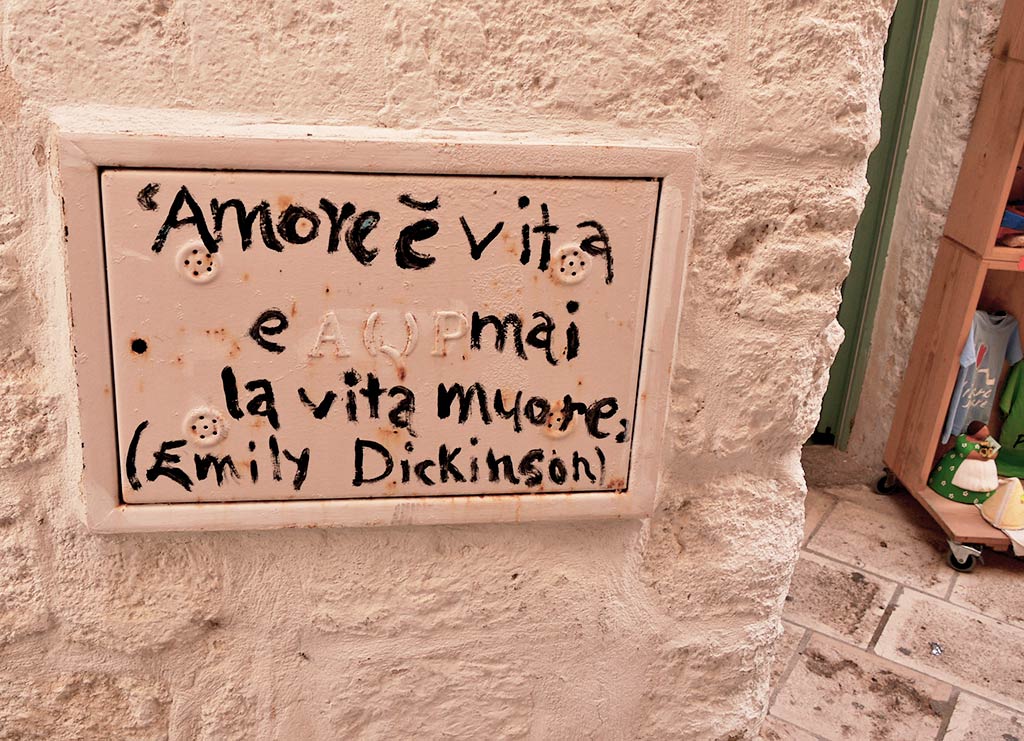 ‘Amore ĕ vita
e AQP mai
la vita muore,
(Emily Dickinson)